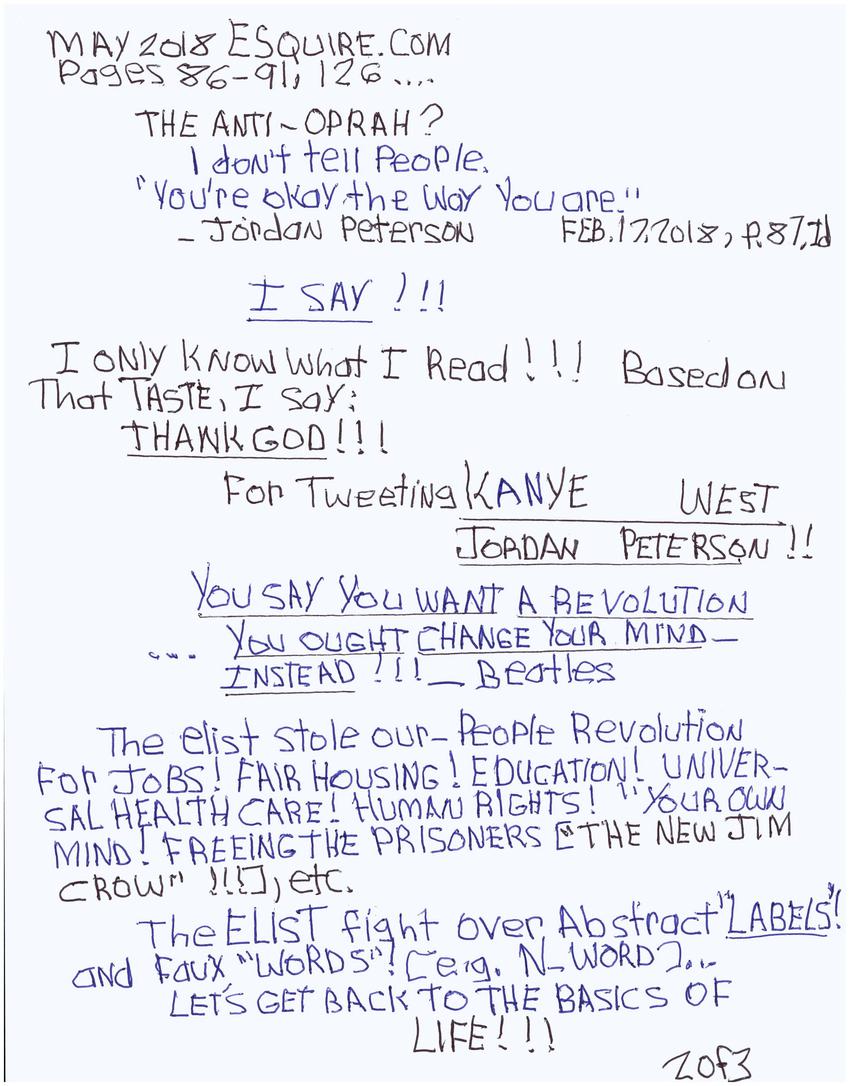 MAY 2018 ESQUIRE.COM
Pages 86-91, 126 ....
THE ANTI-OPRAH?
I don't tell People.
"You're okay the way You are."
- Jordan Peterson FEB. 17, 2018, P. 87, Id
I SAY !!!
I ONLY KNOW What I Read!!! Based ON
That TASTE, I say:
THANK GOD!!!
For Tweeting KANYE WEST
JORDAN PETERSON!!
YOU SAY YOU WANT A REVOLUTION
.... YOU OUGHT CHANGE YOUR MIND—
INSTEAD !!! — Beatles
The elist stole our- People Revolution
For JOBS! FAIR HOUSING! EDUCATION! UNIVER-
SAL HEALTH CARE! HUMAN RIGHTS! "YOUR OWN
MIND! FREEING THE PRISONERS ["THE NEW JIM
CROW" !!!], etc.
The ELIST fight over Abstract "LABELS"!
and Faux "WORDS"! [e.g. N-WORD]...
LET'S GET BACK TO THE BASICS OF
LIFE!!!
2 of 3